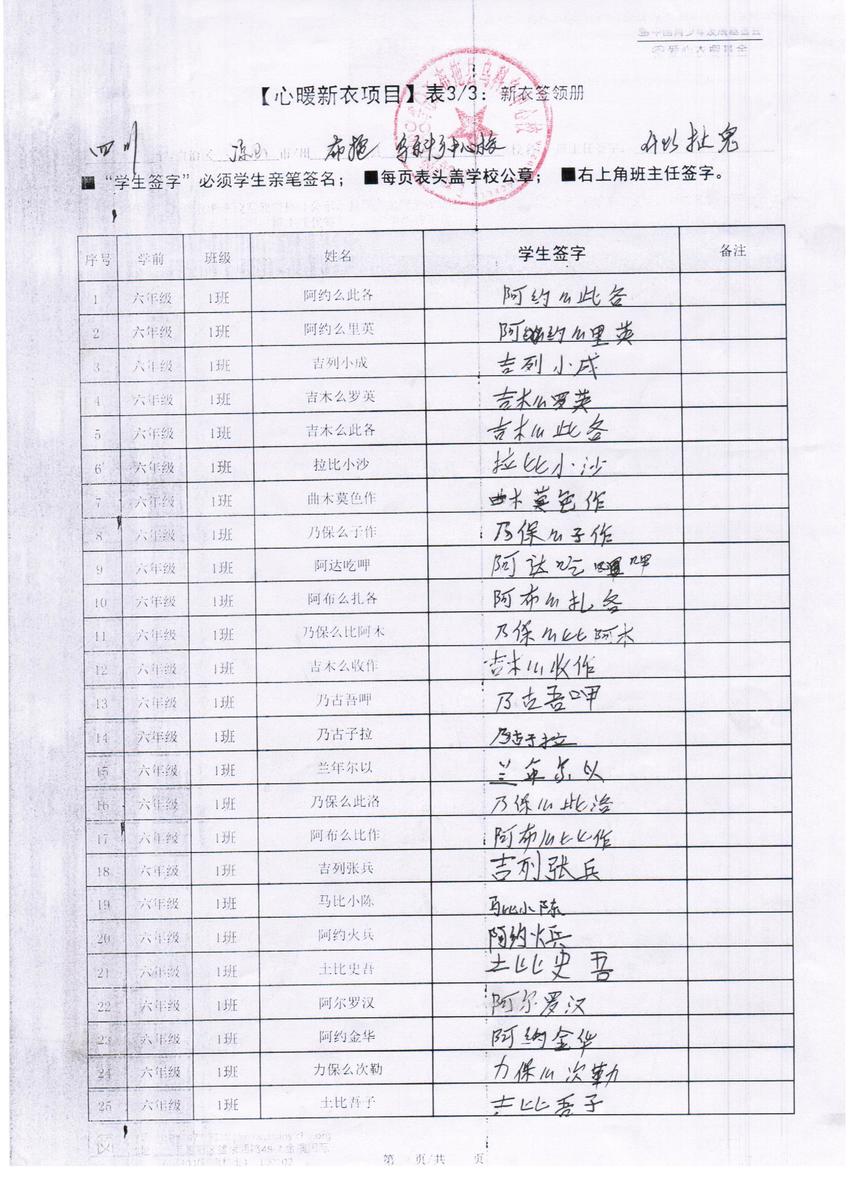 【心暖新衣项目】表3/3：新衣签领册
四川 凉山 布拖 中心校
■“学生签字”必须学生亲笔签名； ■每页表头盖学校公章； ■右上角班主任签字。
序号 学前 班级 姓名 学生签字 备注
1 六年级 1班 阿约么此各 阿约么此各
2 六年级 1班 阿约么里英 阿约么里英
3 六年级 1班 吉列小成 吉列小成
4 六年级 1班 吉木么罗英 吉木么罗英
5 六年级 1班 吉木么此各 吉木么此各
6 六年级 1班 拉比小沙 拉比小沙
7 六年级 1班 曲木莫色作 曲木莫色作
8 六年级 1班 乃保么子作 乃保么子作
9 六年级 1班 阿达吃呷 阿达吃呷
10 六年级 1班 阿布么扎各 阿布么扎各
11 六年级 1班 乃保么比阿木 乃保么比阿木
12 六年级 1班 吉木么收作 吉木么收作
13 六年级 1班 乃古吾呷 乃古吾呷
14 六年级 1班 乃古子拉 乃古子拉
15 六年级 1班 兰年尔以 兰年尔以
16 六年级 1班 乃保么此洛 乃保么此洛
17 六年级 1班 阿布么比作 阿布么比作
18 六年级 1班 吉列张兵 吉列张兵
19 六年级 1班 马比小陈 马比小陈
20 六年级 1班 阿约火兵 阿约火兵
21 六年级 1班 土比史吾 土比史吾
22 六年级 1班 阿尔罗汉 阿尔罗汉
23 六年级 1班 阿约金华 阿约金华
24 六年级 1班 力保么次勒 力保么次勒
25 六年级 1班 土比吾子 土比吾子
第 页/共 页